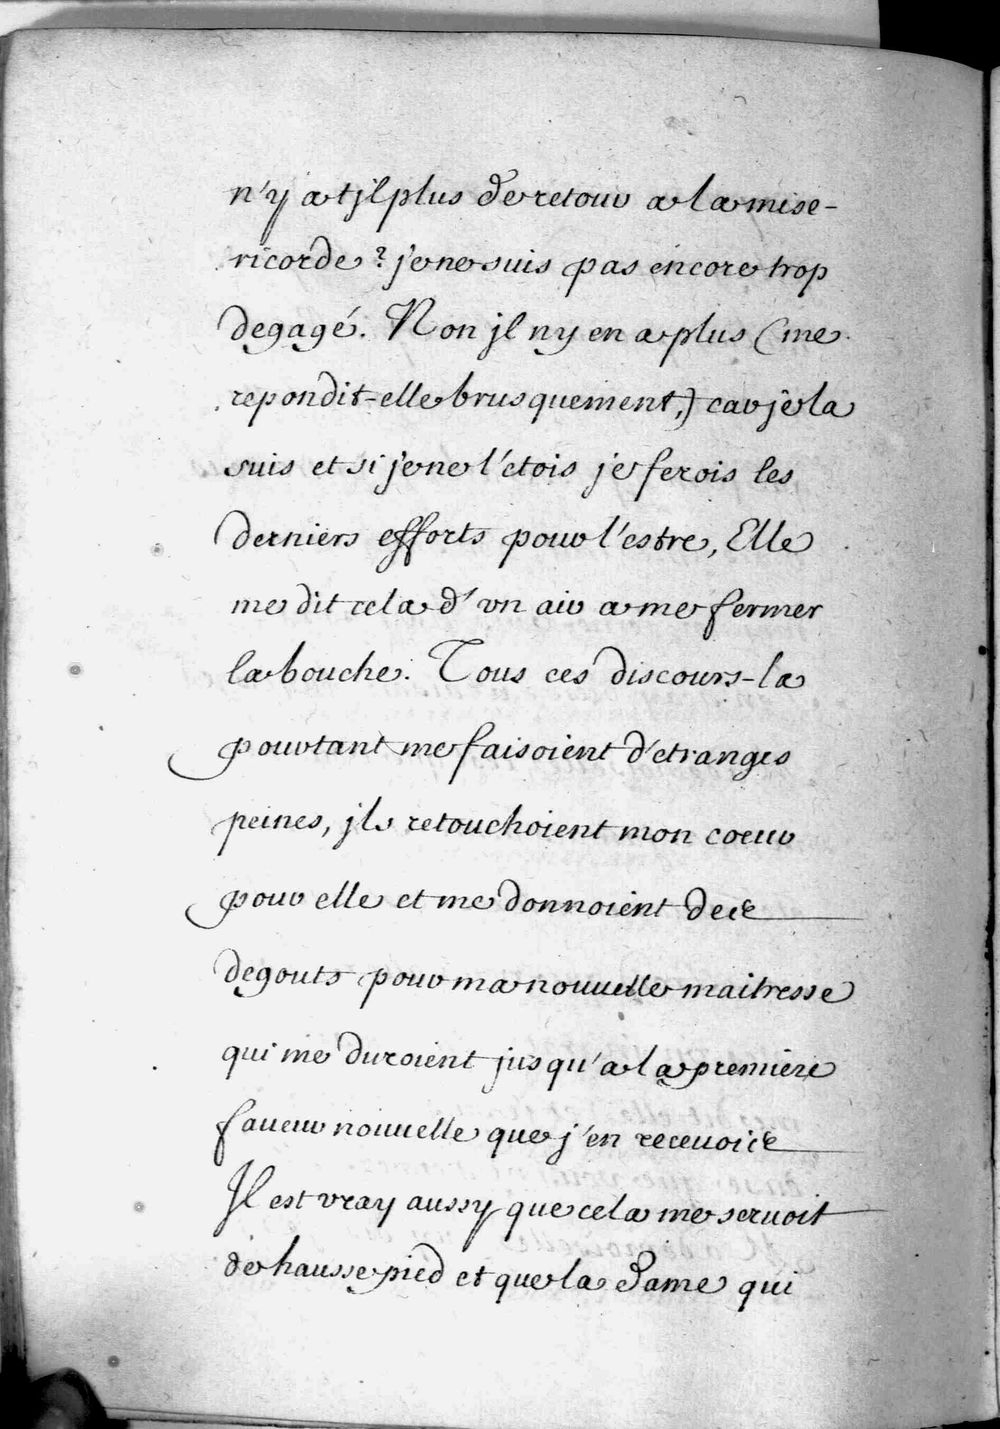 n'y a t jl plus de retour a la mise-
ricorde? je ne suis pas encore trop
degagé. Non jl ny en a plus (me
repondit-elle brusquement,) car je la
suis et si je ne l'etois je ferois les
derniers efforts pour l'estre, Elle
me dit cela d'vn air a me fermer
la bouche. Tous ces discours-la
pourtant me faisoient d'etranges
peines, jls retouchoient mon coeur
pour elle et me donnoient des
degouts pour ma nouuelle maitresse
qui me duroient jusqu'a la premiere
faueur nouuelle que j'en receuois
Jl est vray aussy que cela me seruoit
de hausse pied et que la Dame qui